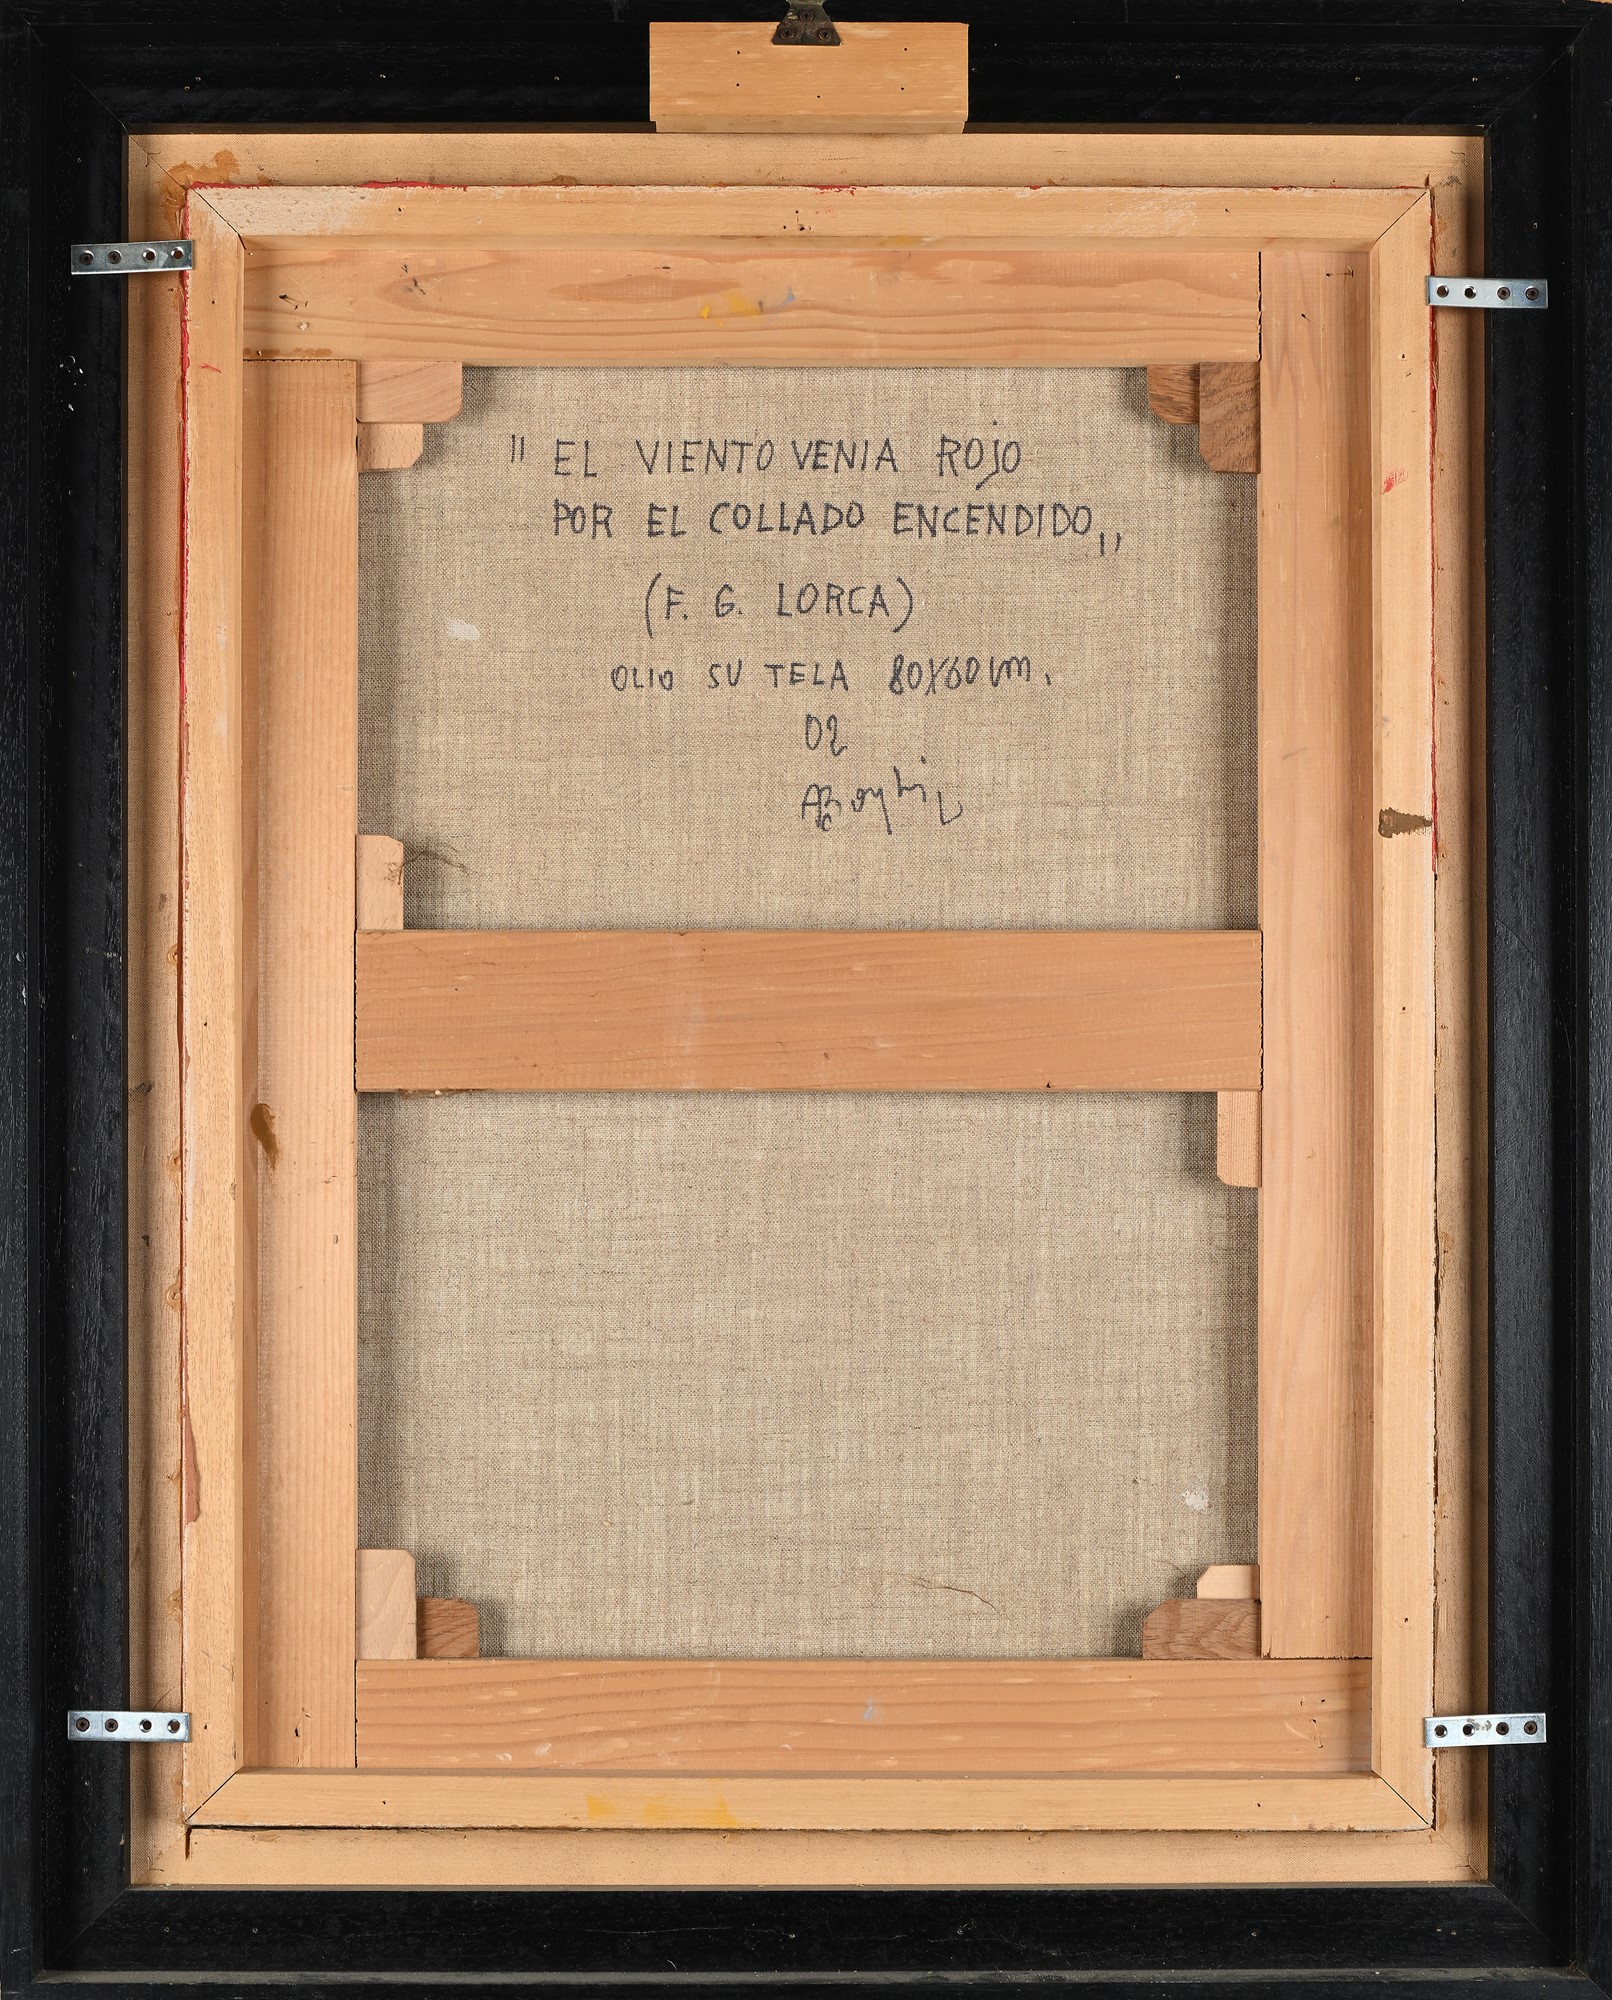 " EL VIENTO VENIA ROJO
POR EL COLLADO ENCENDIDO„
(F. G. LORCA)
OLIO SU TELA 80X60 cm.
02